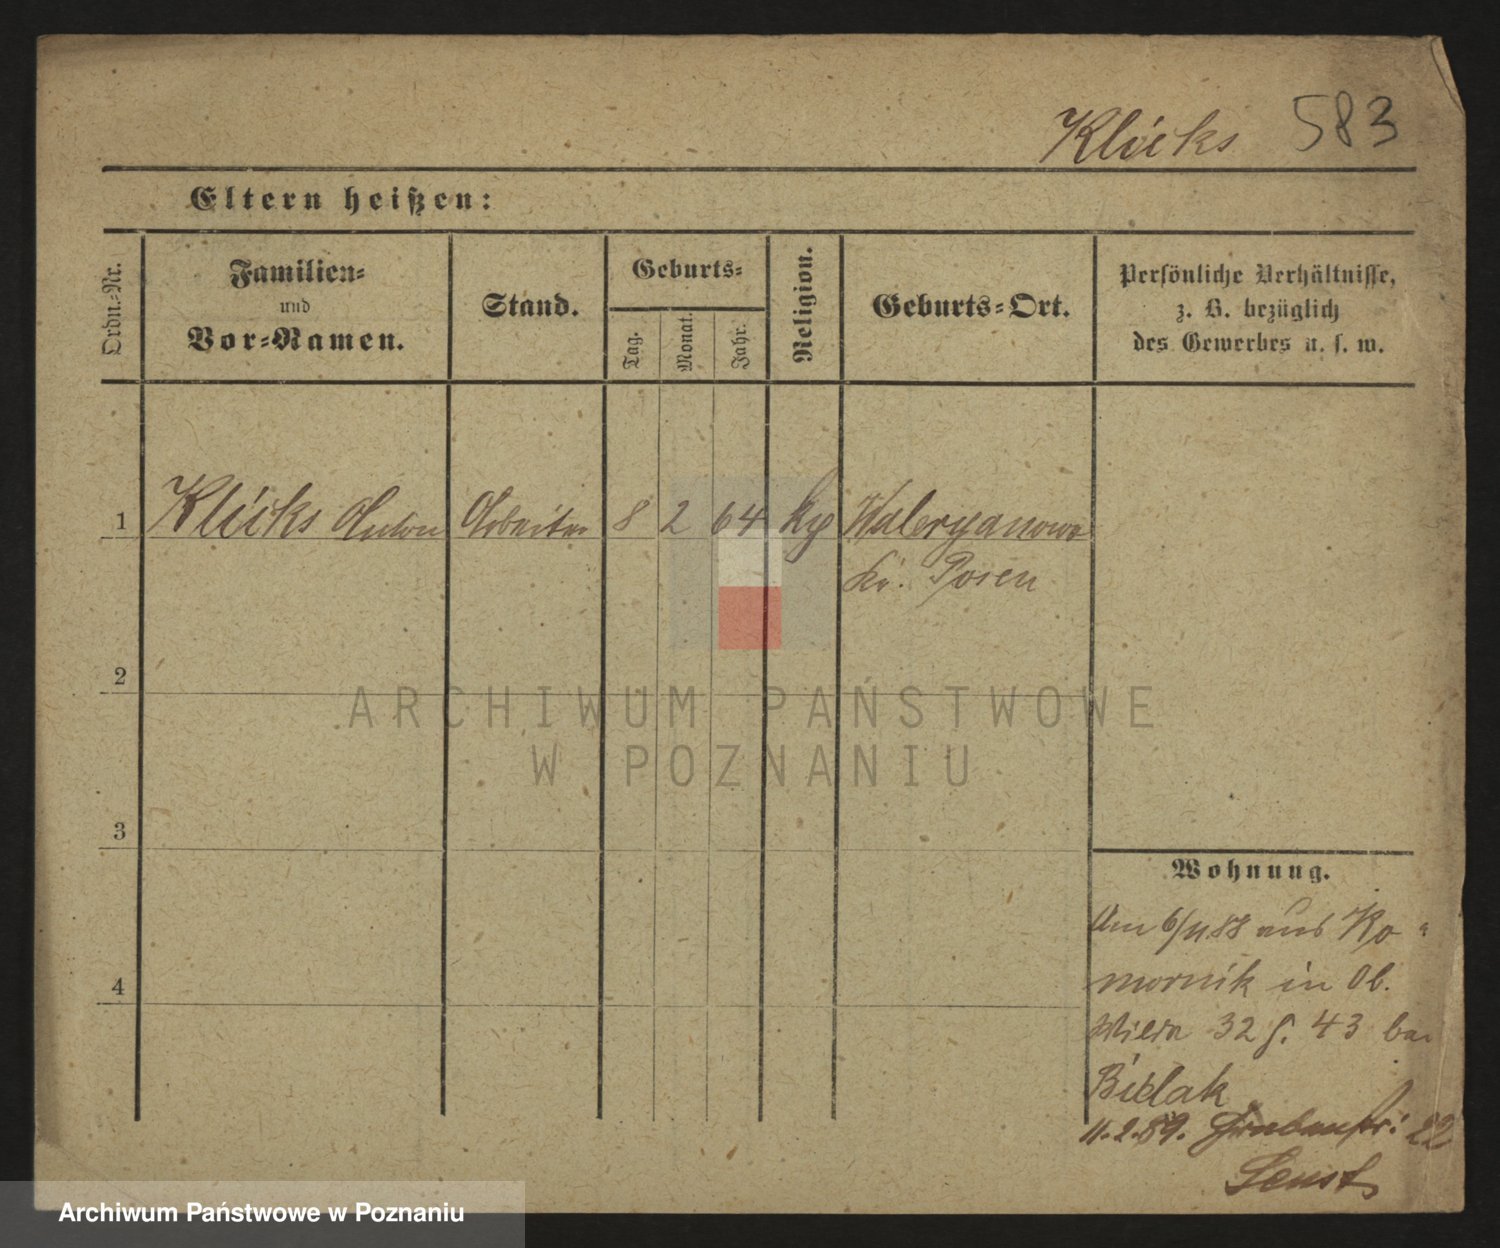 Klicks 583
Eltern heißen:
Ordn.-Nr.
Familien-
und
Vor-Namen.
Stand.
Geburts-
Tag.
Monat.
Jahr.
Religion.
Geburts-Ort.
Persönliche Verhältnisse,
z. B. bezüglich
des Gewerbes u. s. w.
1 Klicks Anton Arbeiter 8 2 64 Waleryanowo
Kr. Posen
2
3
4
Wohnung.
Am 6/11 88 aus Ko-
mornik in Ob.
Wilda 32 43 bei
11.2.89. Grabenstr: 22
ARCHIWUM PAŃSTWOWE
W POZNANIU
Archiwum Państwowe w Poznaniu